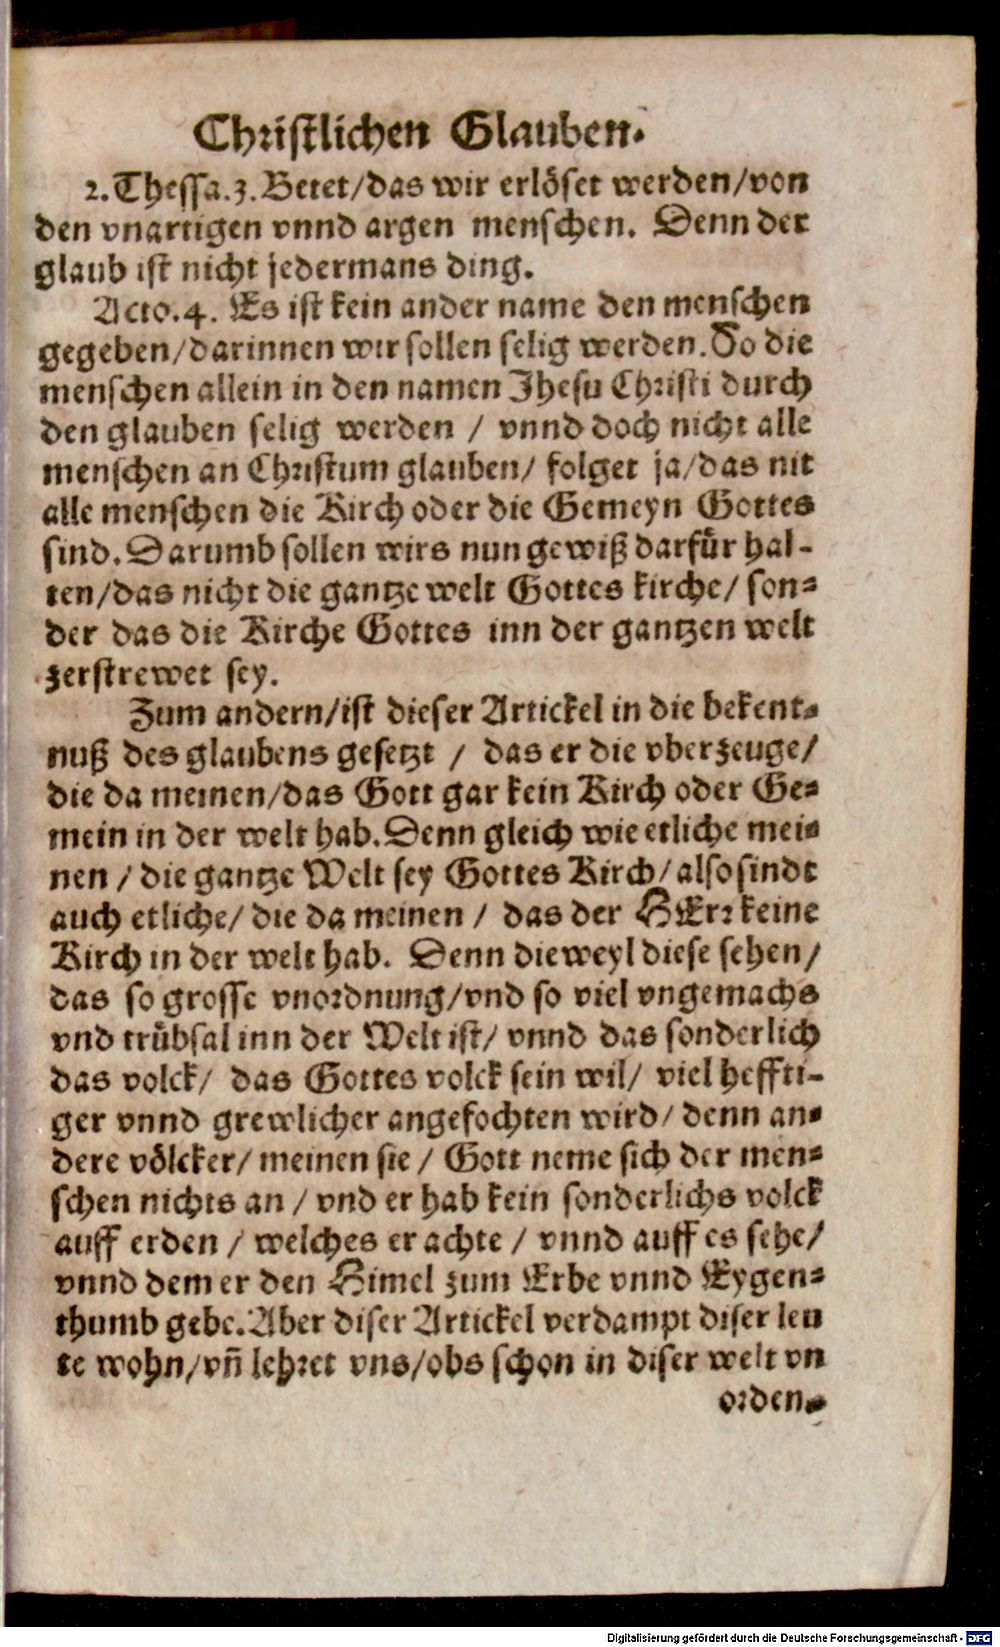 Christlichen Glauben.
2. Thessa. 3. Betet/das wir erlöset werden/von
den vnartigen vnnd argen menschen. Denn der
glaub ist nicht jedermans ding.
Acto. 4. Es ist kein ander name den menschen
gegeben/darinnen wir sollen selig werden. So die
menschen allein in den namen Jhesu Christi durch
den glauben selig werden / vnnd doch nicht alle
menschen an Christum glauben/ folget ja/das nit
alle menschen die Kirch oder die Gemeyn Gottes
sind. Darumb sollen wirs nun gewiß darfür hal-
ten/das nicht die gantze welt Gottes kirche/ son-
der das die Kirche Gottes inn der gantzen welt
zerstrewet sey.
Zum andern/ist dieser Artickel in die bekent-
nuß des glaubens gesetzt / das er die vberzeuge/
die da meinen/das Gott gar kein Kirch oder Ge-
mein in der welt hab. Denn gleich wie etliche mei-
nen / die gantze Welt sey Gottes Kirch/ also sindt
auch etliche/ die da meinen / das der HErr keine
Kirch in der welt hab. Denn dieweyl diese sehen/
das so grosse vnordnung/vnd so viel vngemachs
vnd trübsal inn der Welt ist/ vnnd das sonderlich
das volck/ das Gottes volck sein wil/ viel heffti-
ger vnnd grewlicher angefochten wird/ denn an-
dere völcker/ meinen sie / Gott neme sich der men-
schen nichts an / vnd er hab kein sonderlichs volck
auff erden / welches er achte / vnnd auff es sehe/
vnnd dem er den Himel zum Erbe vnnd Eygen-
thumb gebe. Aber diser Artickel verdampt diser leu
te wohn/vñ lehret vns/obs schon in diser welt vn
orden-
Digitalisierung gefördert durch die Deutsche Forschungsgemeinschaft - DFG